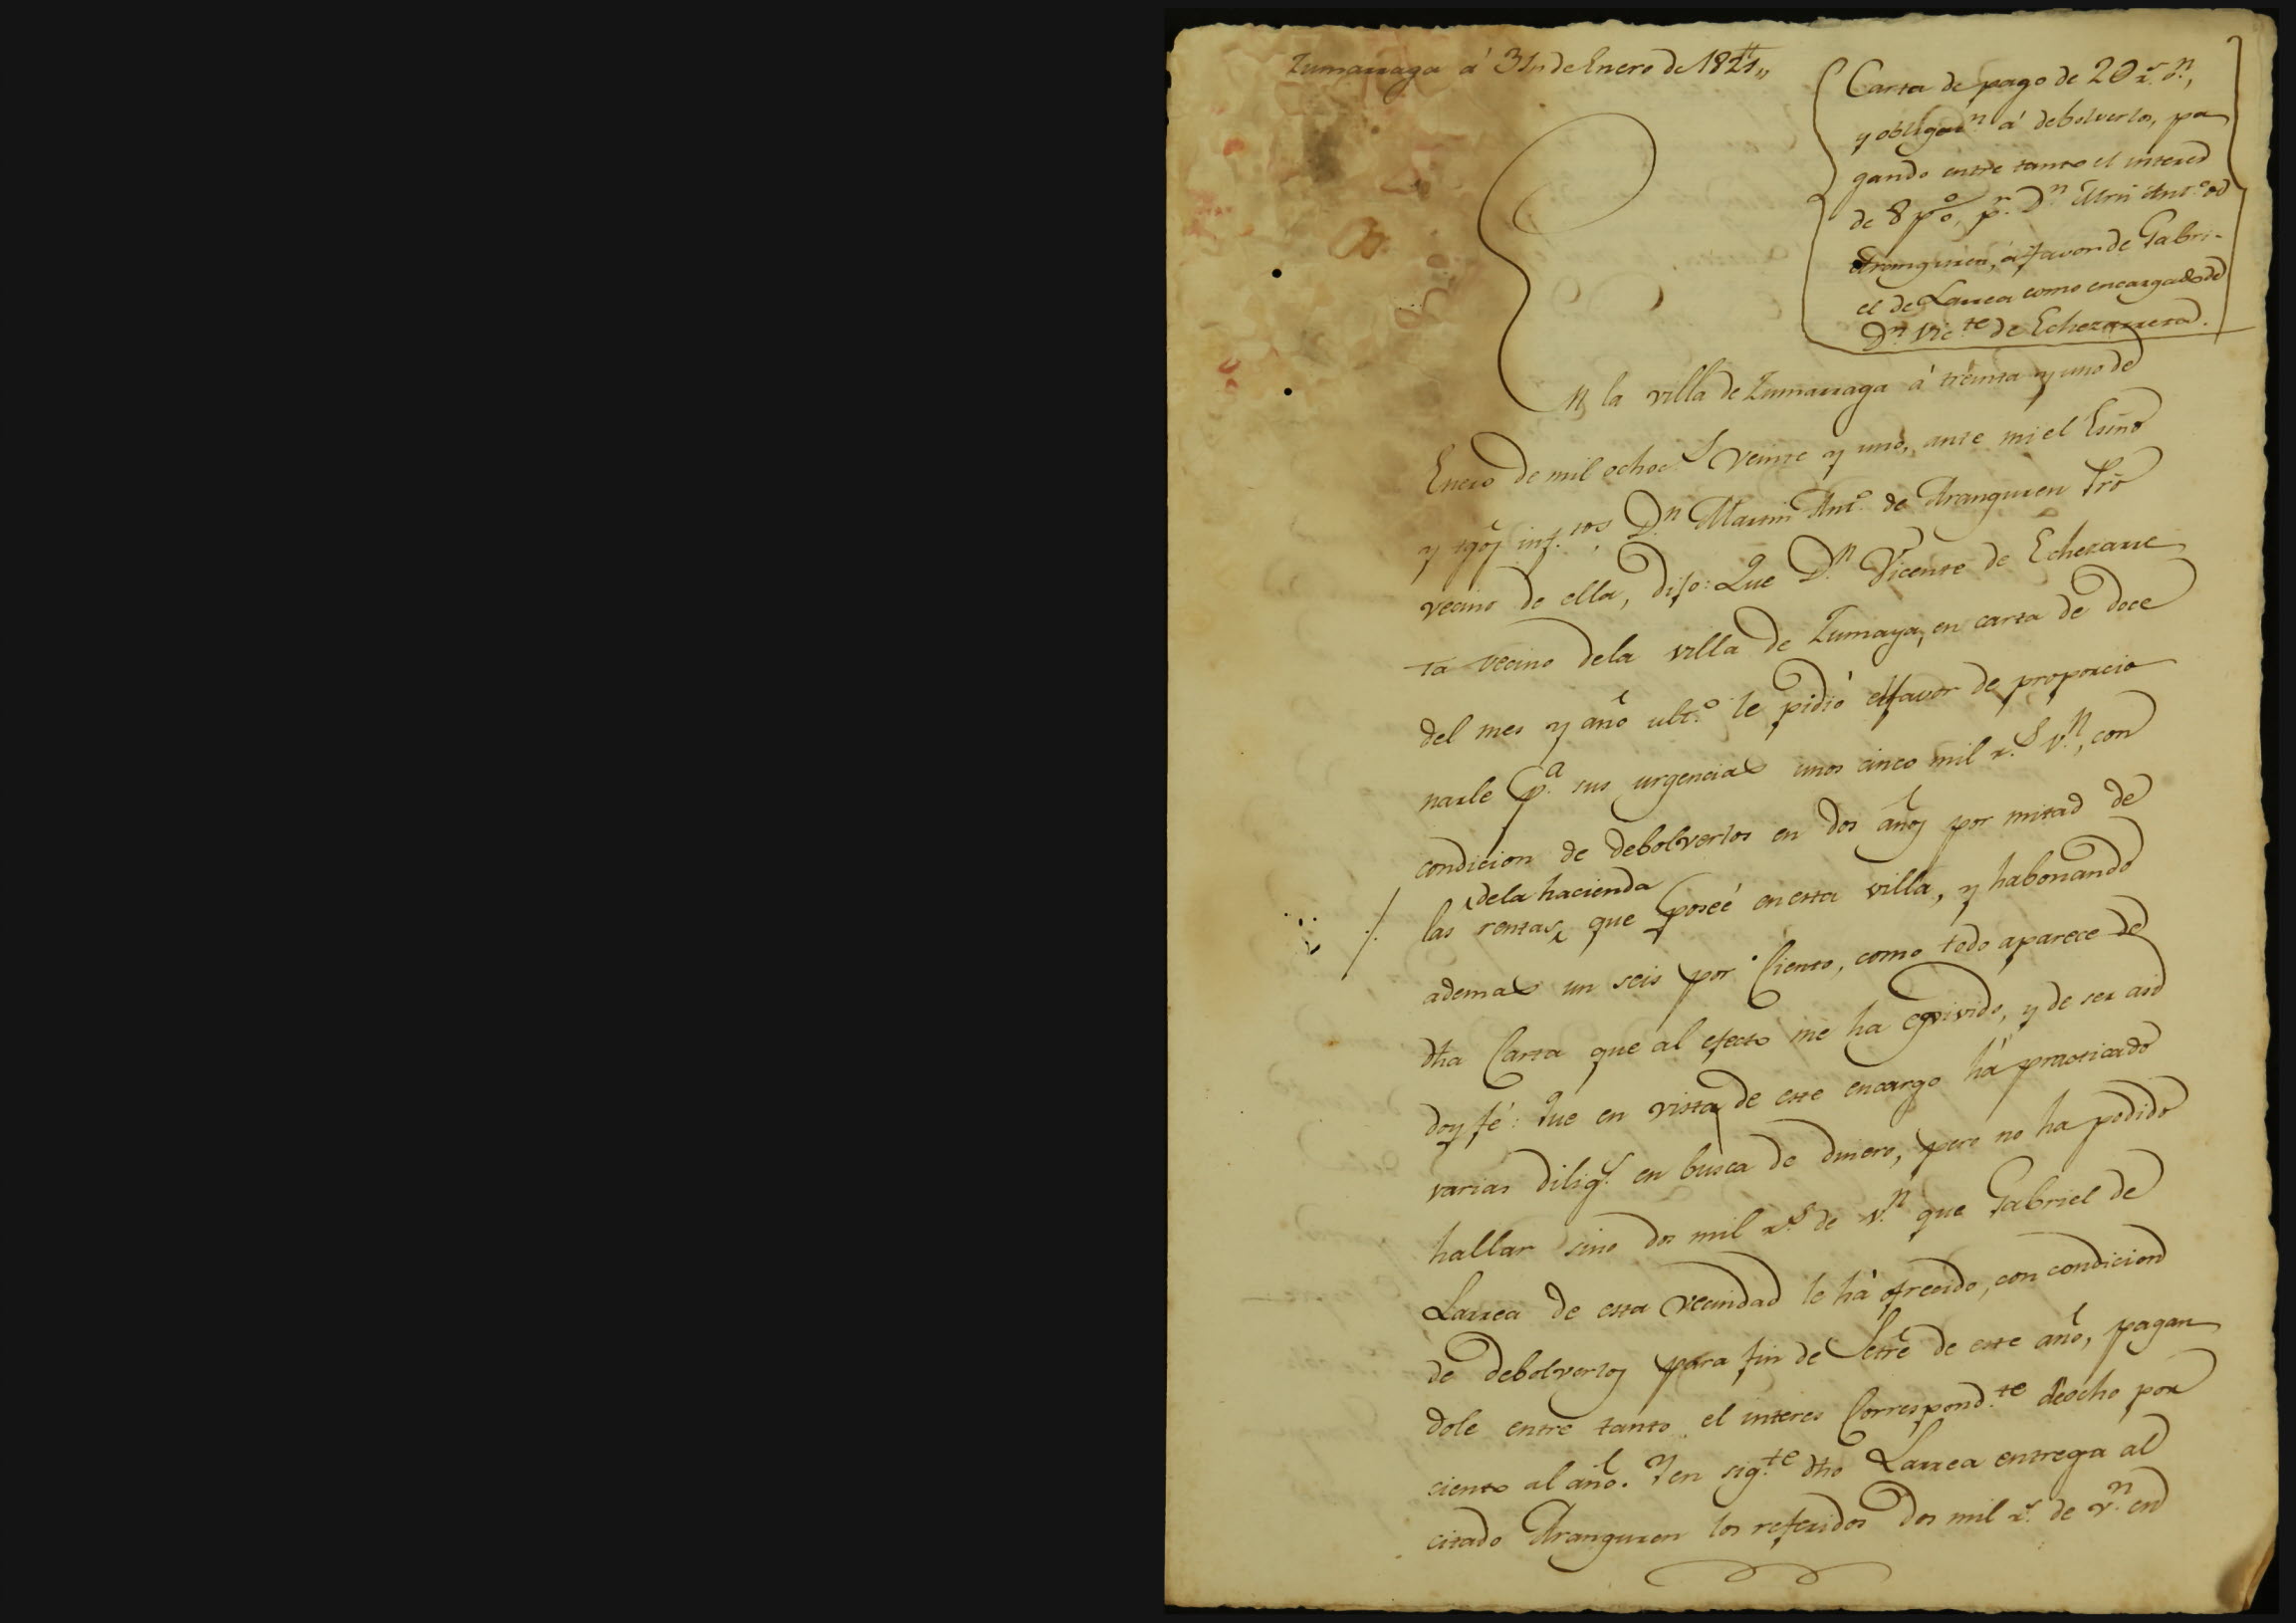 Zumarraga á 31 de Enero de 1821,,
Carta de pago de 20 r.s v.n,
y obligac.n á debolverlos, pa
gando entre tanto el interes
de 8 p%, p.r D.n Mrñ Ant.o de
Aranguren, á favor de Gabri-
el de Larrea como encargado de
D.n Vic.te de Echezarreta.
En la villa de Zumarraga á treinta y uno de
Enero de mil ochoc.s veinte y uno, ante mi el Esnõ
y tgõs inf.tos, D.n Martin Ant.o de Aranguren Prõ
vecino de ella, dijo: Que D.n Vicente de Echezarre
ta vecino dela villa de Zumaya, en carta de doce
del mes y año ult.o le pidió el favor de proporcio
narle p.a sus urgencias unos cinco mil r.s v.n, con
condicion de debolverlos en dos años por mitad de
dela hacienda
las rentas que poseé en esta villa, y habonando
ademas un seis por Ciento, como todo aparece de
dha Carta que al efecto me ha esivido, y de ser asi
doy fé: Que en vista de este encargo há practicado
varias dilig.s en busca de dinero, pero no ha podido
hallar sino dos mil r.s de v.n que Gabriel de
Larrea de esta vecindad le há ofrecido, con condicion
de debolverlos para fin de Setrẽ de este año, pagan
dole entre tanto el interes Correspond.te de ocho por
ciento al año. Y en sig.te dho Larrea entrega al
citado Aranguren los referidos dos mil r.s de v.n en